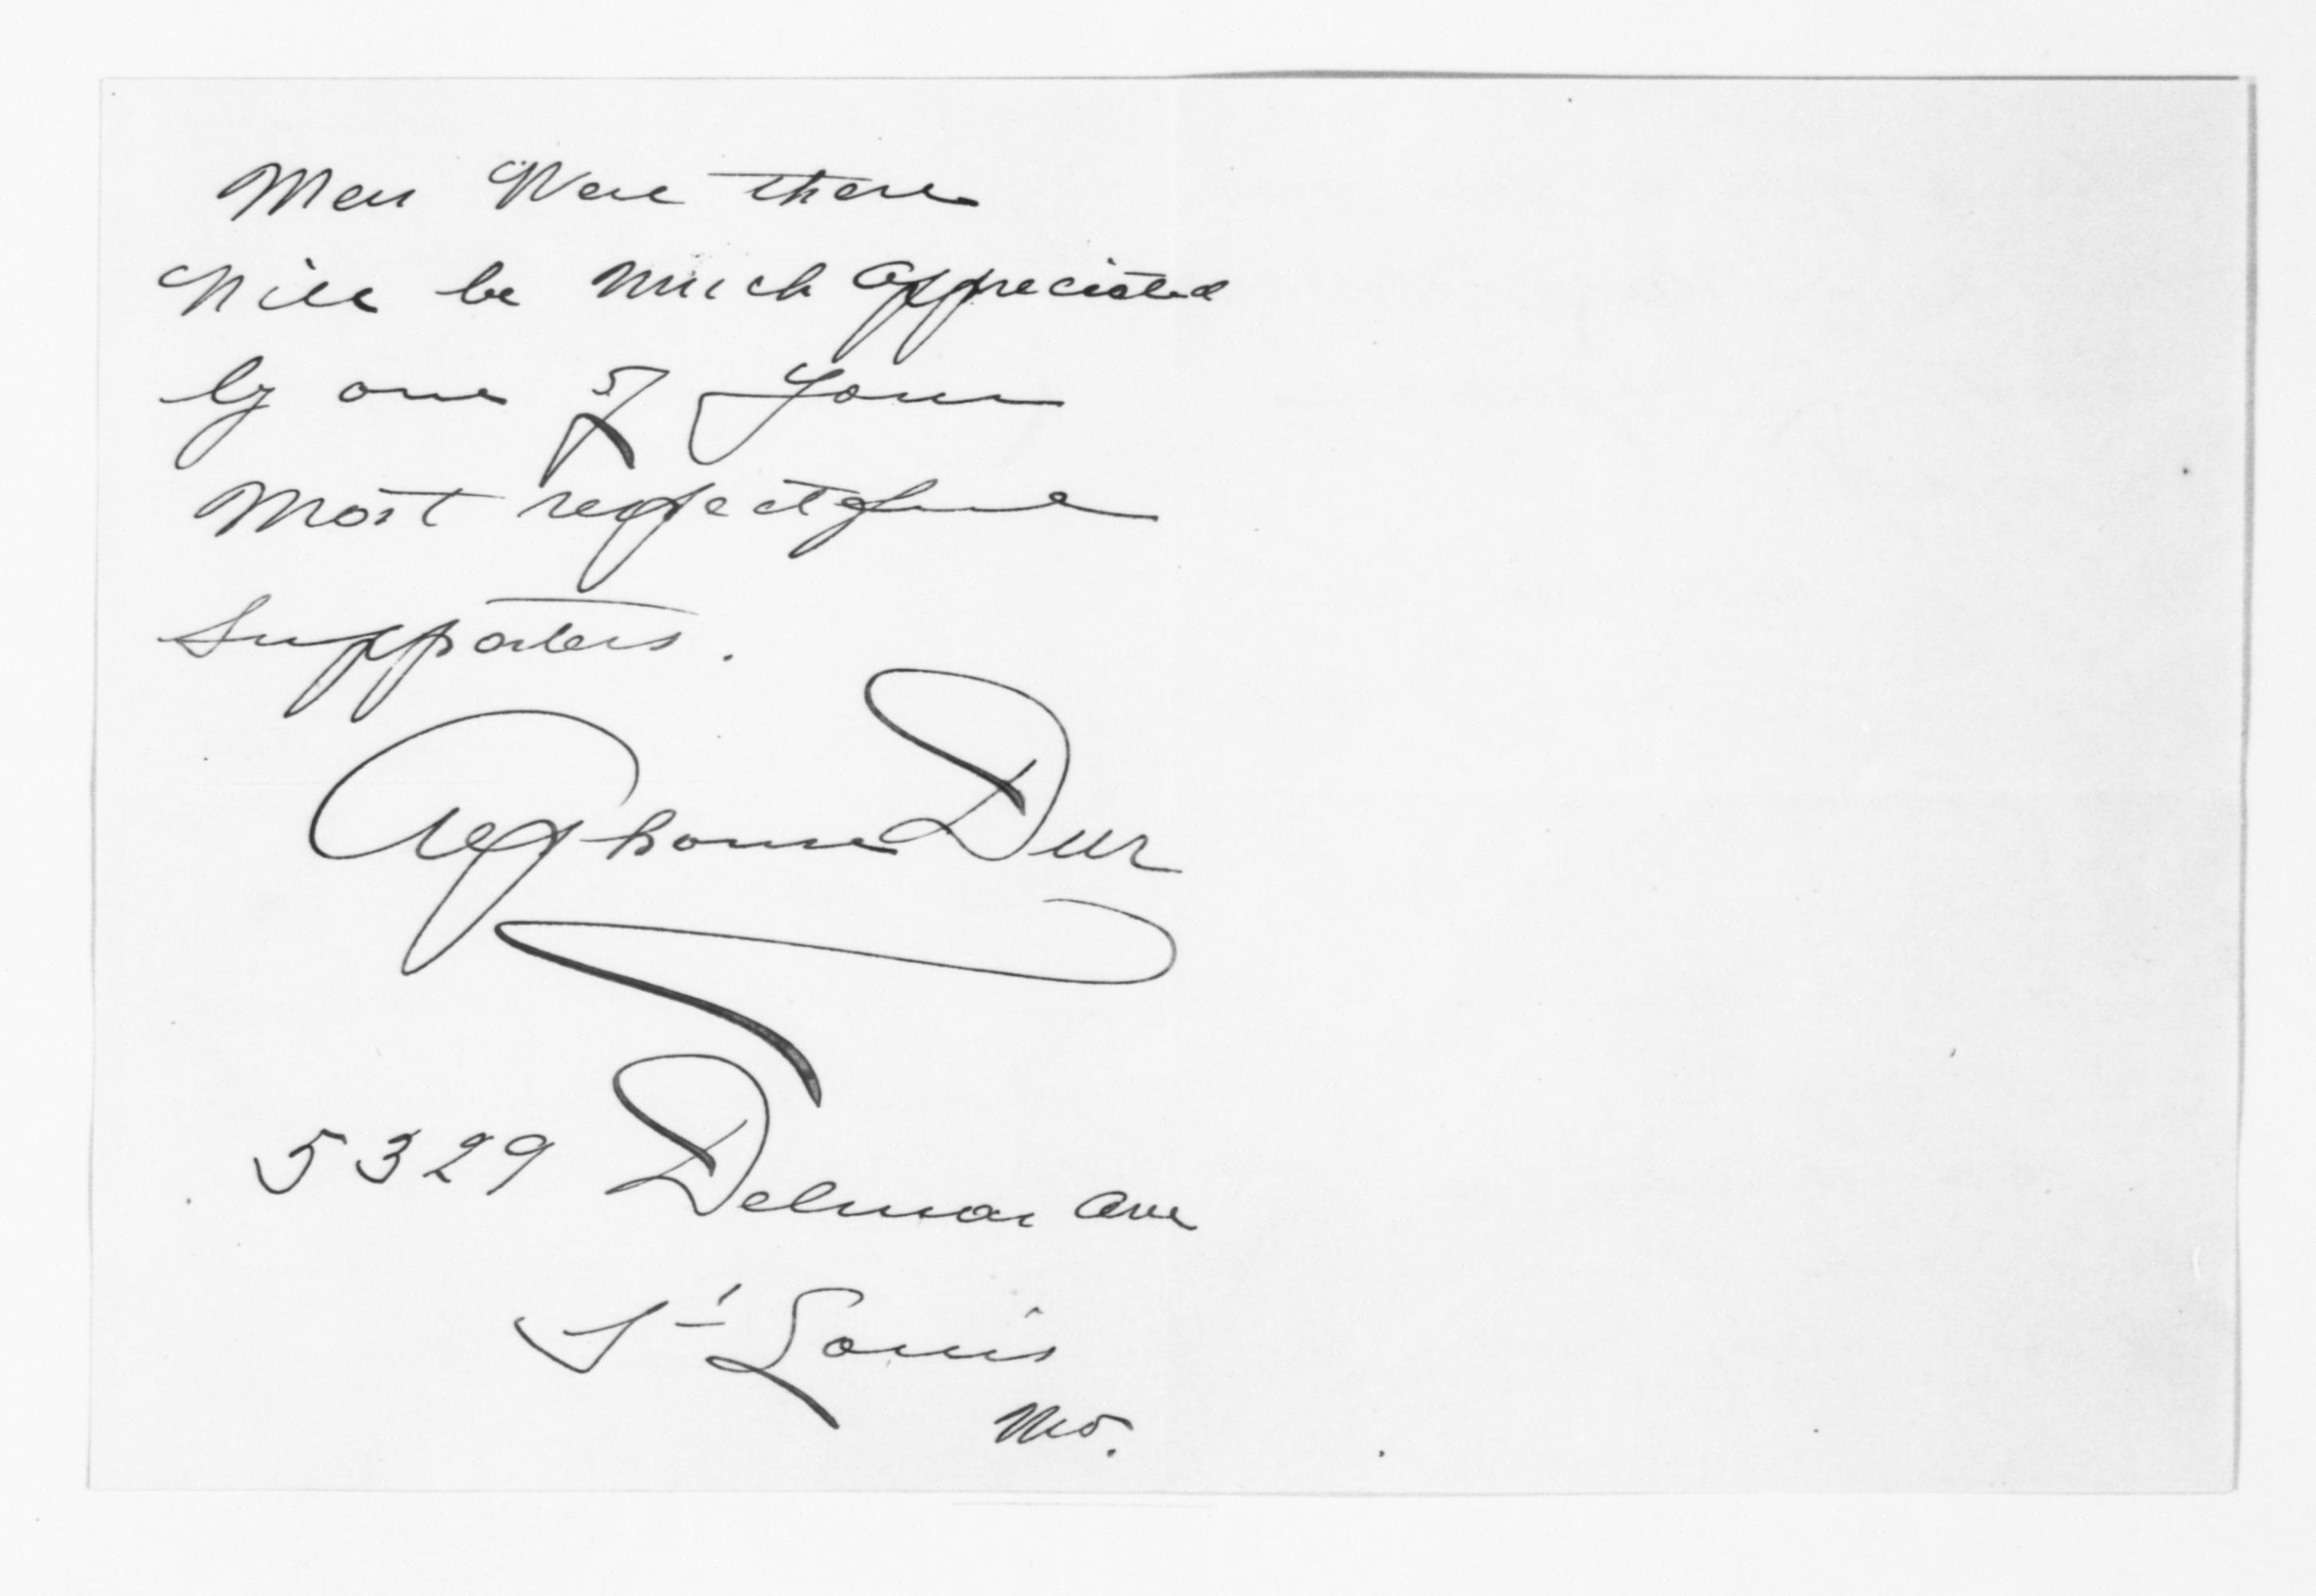 Men Were there
Will be Much appreciated
by one of Your
Most respectful
supporters.
Alphonse Dur
5329 Delmar ave
St Louis
Mo.